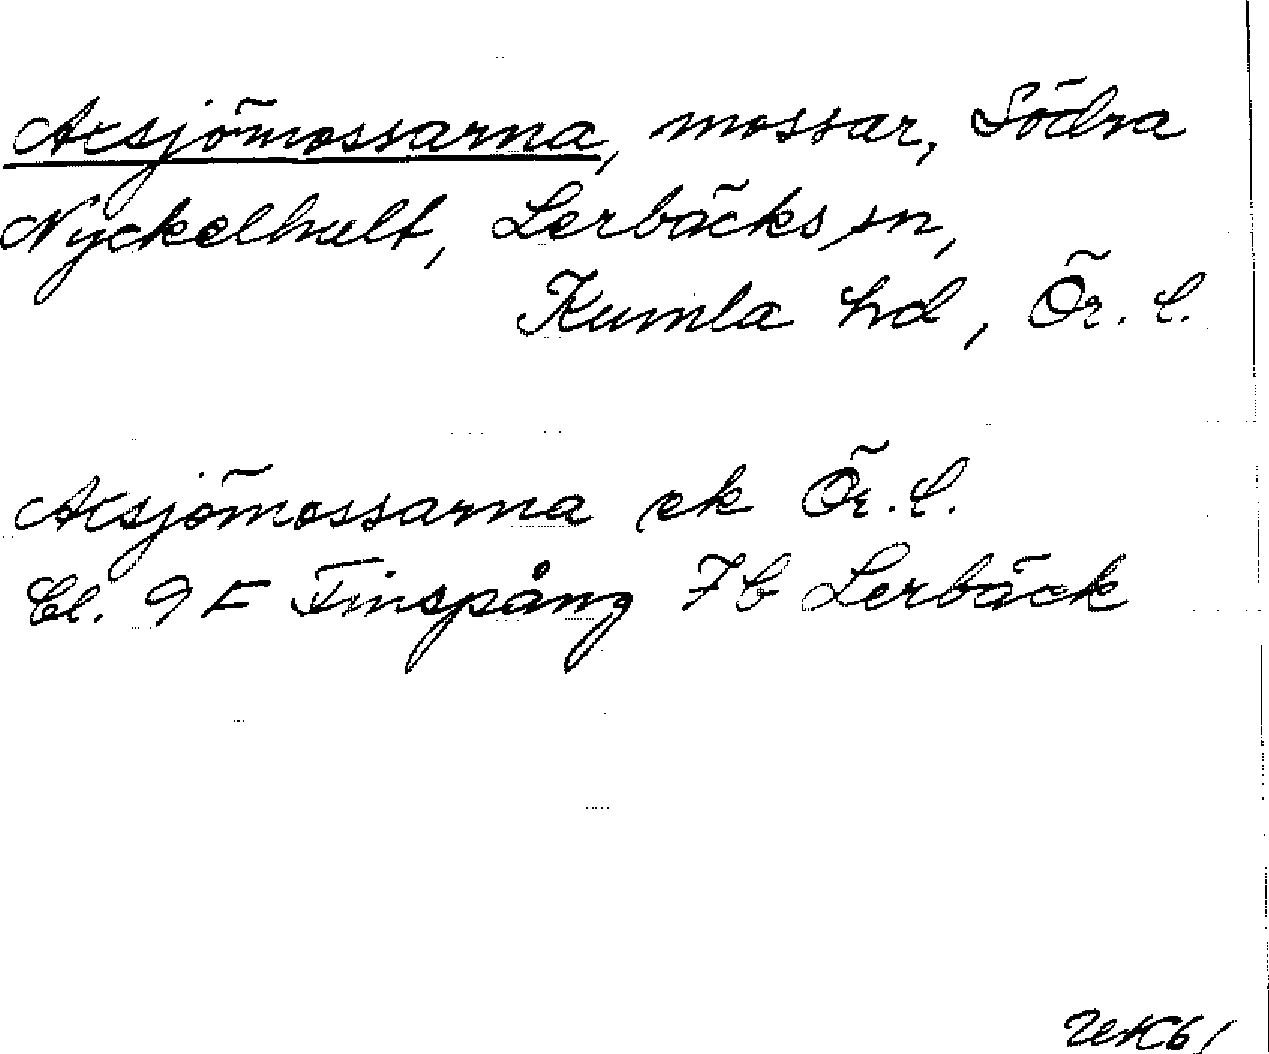 Axsjömossarna, mossar, Södra
Nyckelhult, Lerbäcks sn,
Kumla hd, Ör. l.
Axsjömossarna ek Ör. l.
Bl. 9 F Finspång 7 b Lerbäck